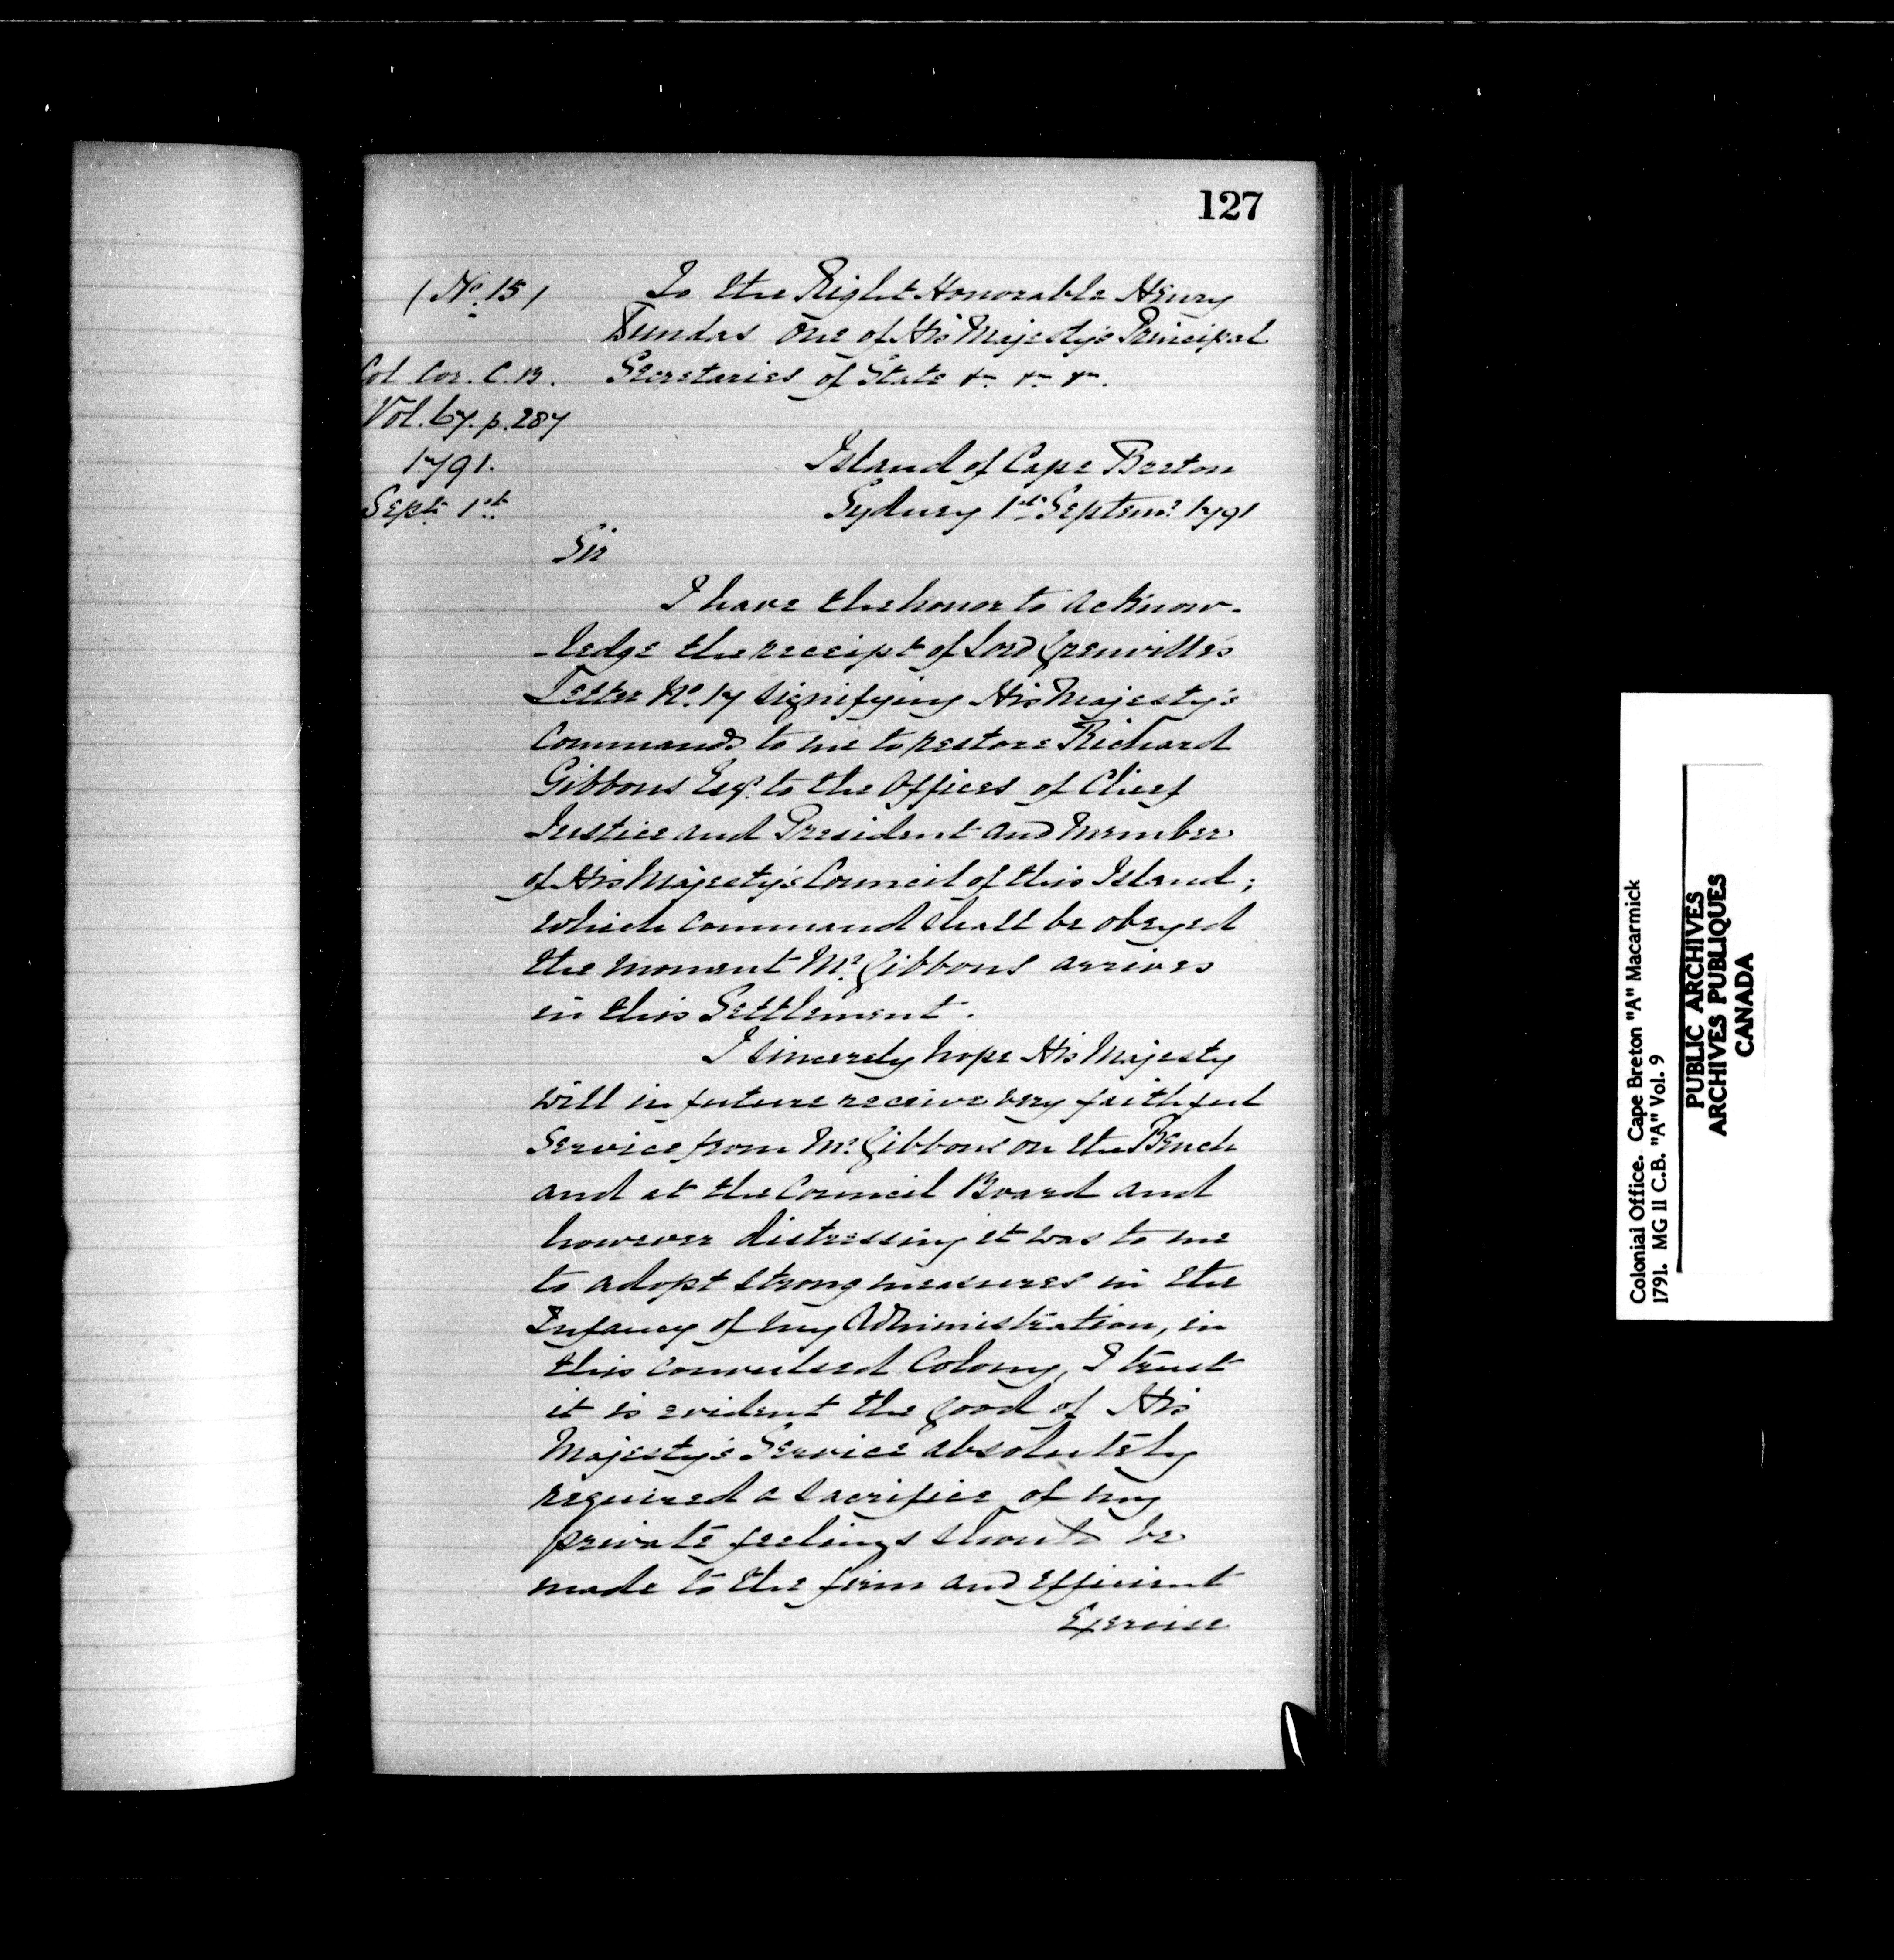 127
(No. 15)
To the Right Honorable Henry
Dundas One of His Majesty's Principal
Secretaries of State &c &c &c.
Col. Cor. C.B.
Vol. 67. p. 287
1791.
Sept. 1st.
Island of Cape Breton
Sydney 1st Septemr. 1791
Sir
I have the honor to acknow-
-ledge the receipt of Lord Grenville's
Letter No. 17 signifying His Majesty's
Commands to me to restore Richard
Gibbons Esqr. to the Offices of Chief
Justice and President and Member
of His Majesty's Council of this Island;
which command shall be obeyed
the moment Mr. Gibbons arrives
in this Settlement.
I sincerely hope His Majesty
will in future receive very faithful
Service from Mr. Gibbons on the Bench
and at the Council Board and
however distressing it was to me
to adopt strong measures in the
Infancy of my Administration, in
this convulsed Colony, I trust
it is evident the good of His
Majesty's Service absolutely
required a sacrifice of my
private feelings should be
made to the firm and efficient
Exercise
Colonial Office. Cape Breton "A" Macarmick
1791. MG 11 C.B. "A" Vol. 9
PUBLIC ARCHIVES
ARCHIVES PUBLIQUES
CANADA